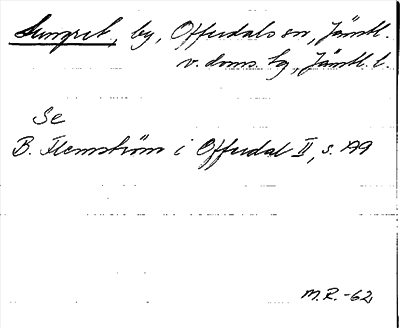 by, Offerdals sn, Jämtl.
v. doms. hg, Jämtl. l.
Se
B. Flemström i Offerdal II, s. 199
M.R. -62